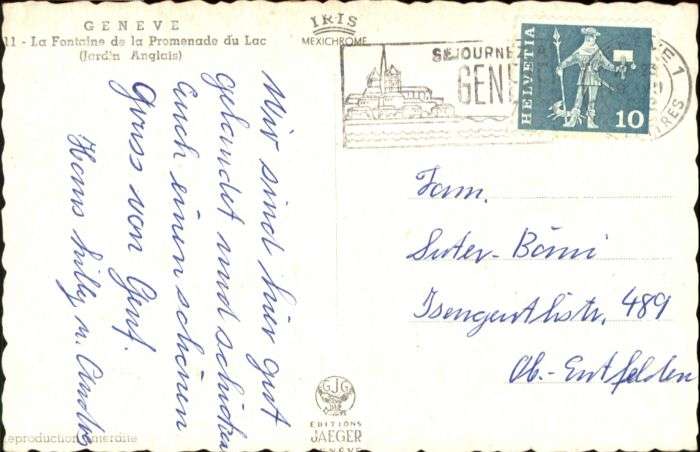 GENEVE
11 - La Fontaine de la Promenade du Lac
(Jard'n Anglais)
IRIS
MEXICHROME
SEJOURNEZ
GENE
HELVETIA
10
1
Wir sind hier gut
gelandet und schicken
Euch einen schönen
Gruss von Genf.
Hans Lilly u.
Fam.
Suter-Bänni
489
Ob.-Entfelden
GJG
EDITIONS
JAEGER
GENÈVE
Reproduction interdite